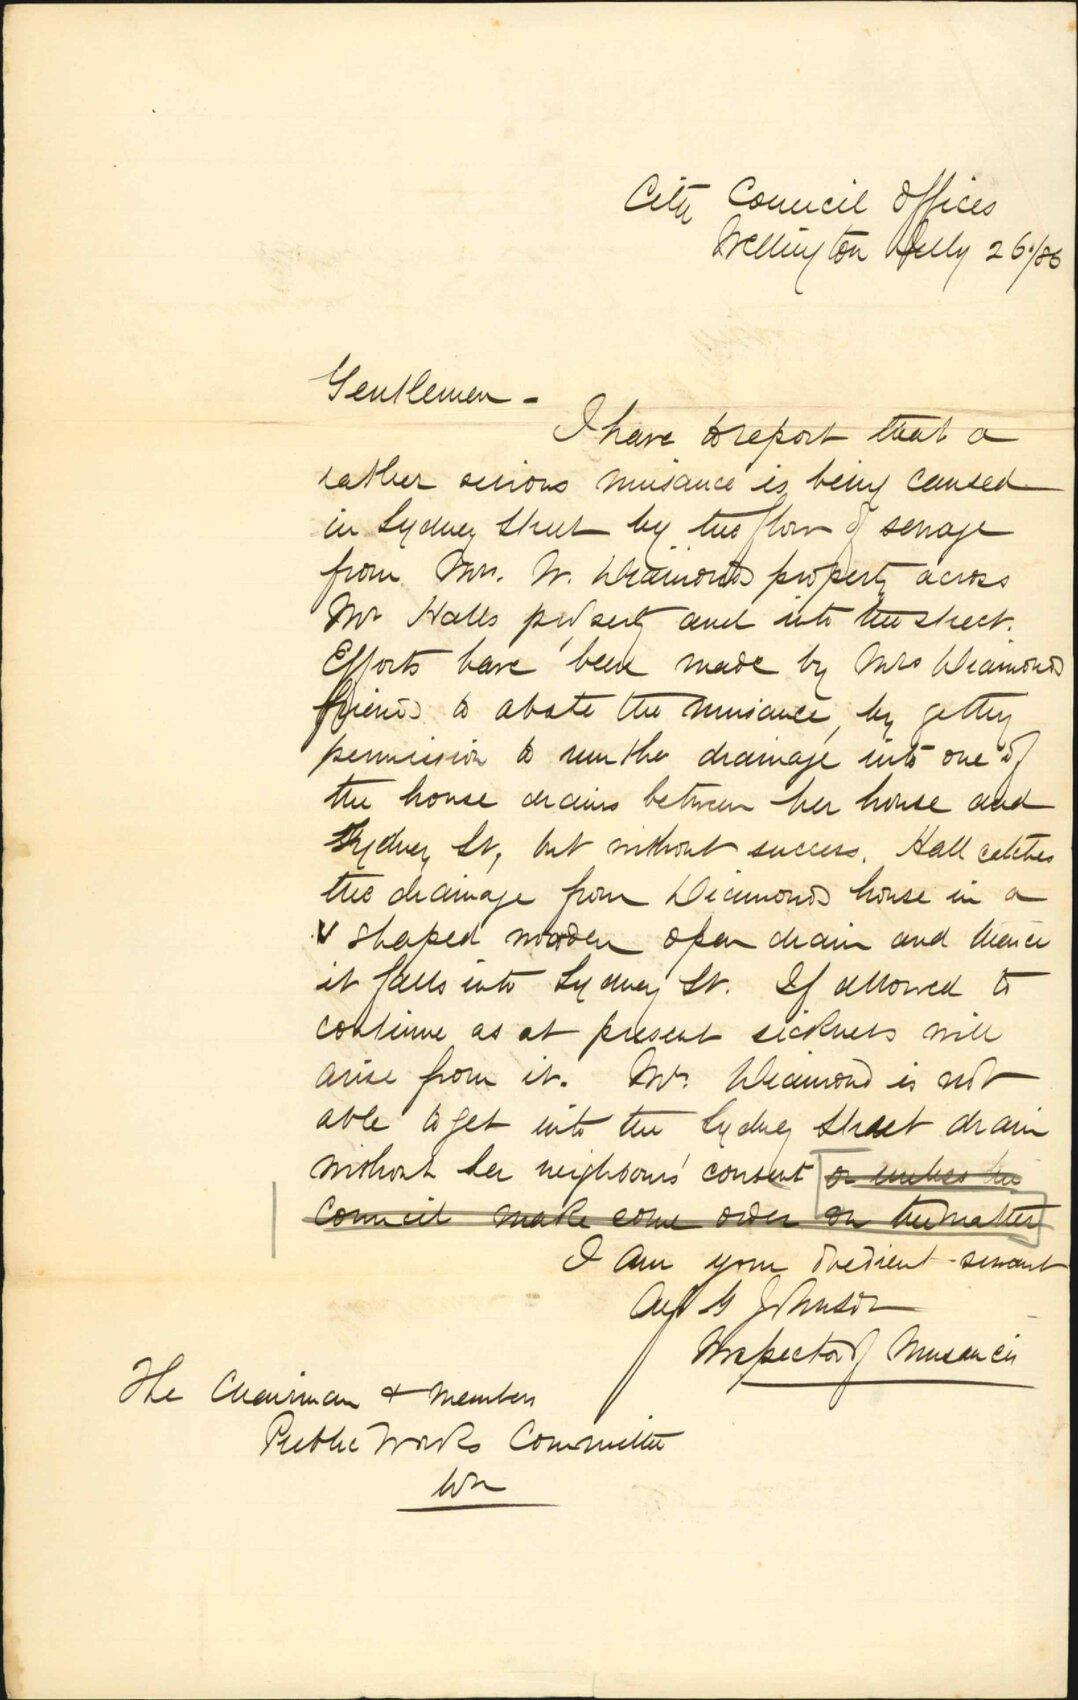 City Council Offices
Wellington July 26./86
Gentlemen -
I have to report that a
rather serious nuisance is being caused
in Sydney Street by the flow of sewage
from Mrs. W. Diamonds property across
Mr Halls property and into the street.
Efforts have been made by Mrs Diamonds
friends to abate the nuisance, by getting
permission to run the drainage into one of
the house drains between her house and
Sydney St, but without success. Hall catches
the drainage from Diamonds house in a
V shaped wooden open drain and thence
it falls into Sydney St. If allowed to
continue as at present sickness will
arise from it. Mrs. Diamond is not
able to get into the Sydney Street drain
without her neighbours' consent or unless the
Council make some order on the matter
I am your obedient servant
G Johnson
Inspector of Nuisances
The Chairman & Members
Public Works Committee
Wn